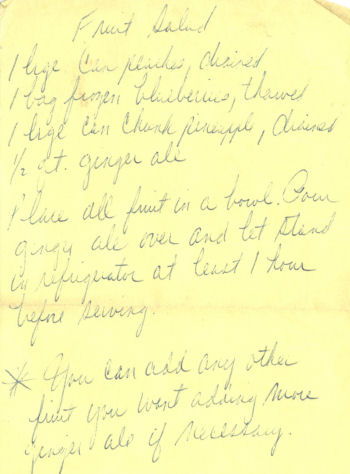 Fruit Salad
1 lrge. Can peaches, drained
1 bag frozen blueberries, thawed
1 lrge can Chunk pineapple, drained
1/2 qt. ginger ale
Place all fruit in a bowl. Pour
ginger ale over and let stand
in refrigerator at least 1 hour
before serving.
* You can add any other
fruit you want adding more
ginger ale if necessary.